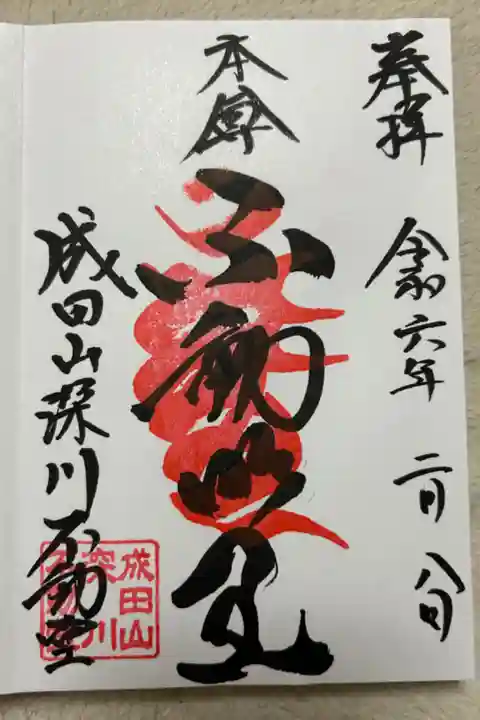 奉拝 令和六年 二月八日
本尊
不動明王
成田山深川不動堂
成田山
深川
不動堂